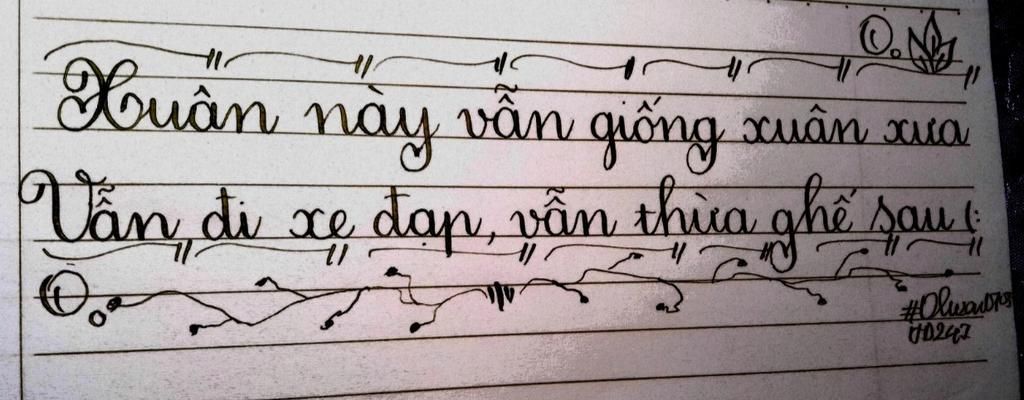 Xuân này vẫn giống xuân xưa
Vẫn đi xe đạp, vẫn thừa ghế sau (: